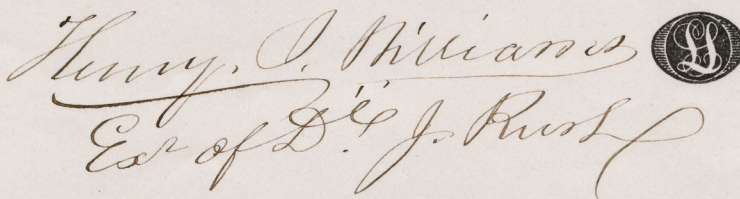 Henry. J. Williams LS
Exr of Dr J. Rush